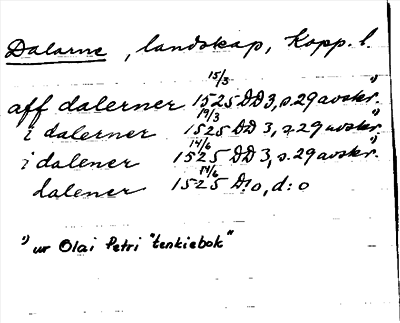 Dalarne, landskap, Kopp. l.
aff dalerner 15/3 1525 DD 3, s. 29 avskr. ¹)
i dalerner 19/3 1525 DD 3, s. 29 avskr. ¹)
i dalener 14/6 1525 DD 3, s. 29 avskr. ¹)
dalener 14/6 1525 D:o, d:o
¹) ur Olai Petri "tenkiebok"